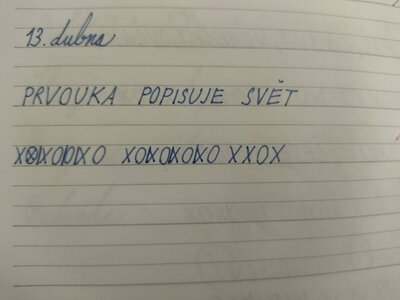 13. dubna
PRVOUKA POPISUJE SVĚT
XOXOXOXO XXOX